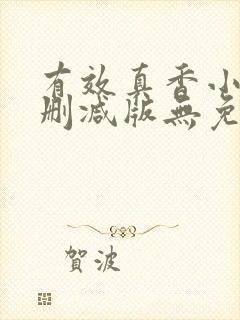 有效真香小
删减版無免
賀波